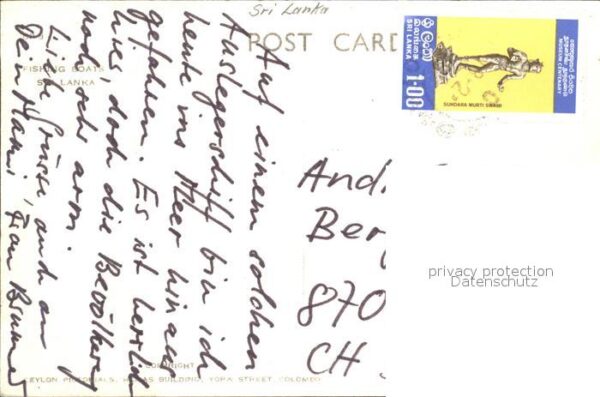 Sri Lanka
POST CARD
FISHING BOATS
SRI LANKA
Auf einem solchen
Auslegerschiff bin ich
heute ins Meer hinaus
gefahren. Es ist herrlich
hier, doch die Bevölkerung
noch sehr arm.
Liebe Grüsse, auch an
Dein Mami, Frau Brunner
And
Ber
870
CH
ශ්‍රී ලංකා
இலங்கை
SRI LANKA
1·00
SUNDARA MURTI SWAMI
MUSEUM CENTENARY
COPYRIGHT
CEYLON PICTORIALS, BUILDING, YORK STREET, COLOMBO
privacy protection
Datenschutz